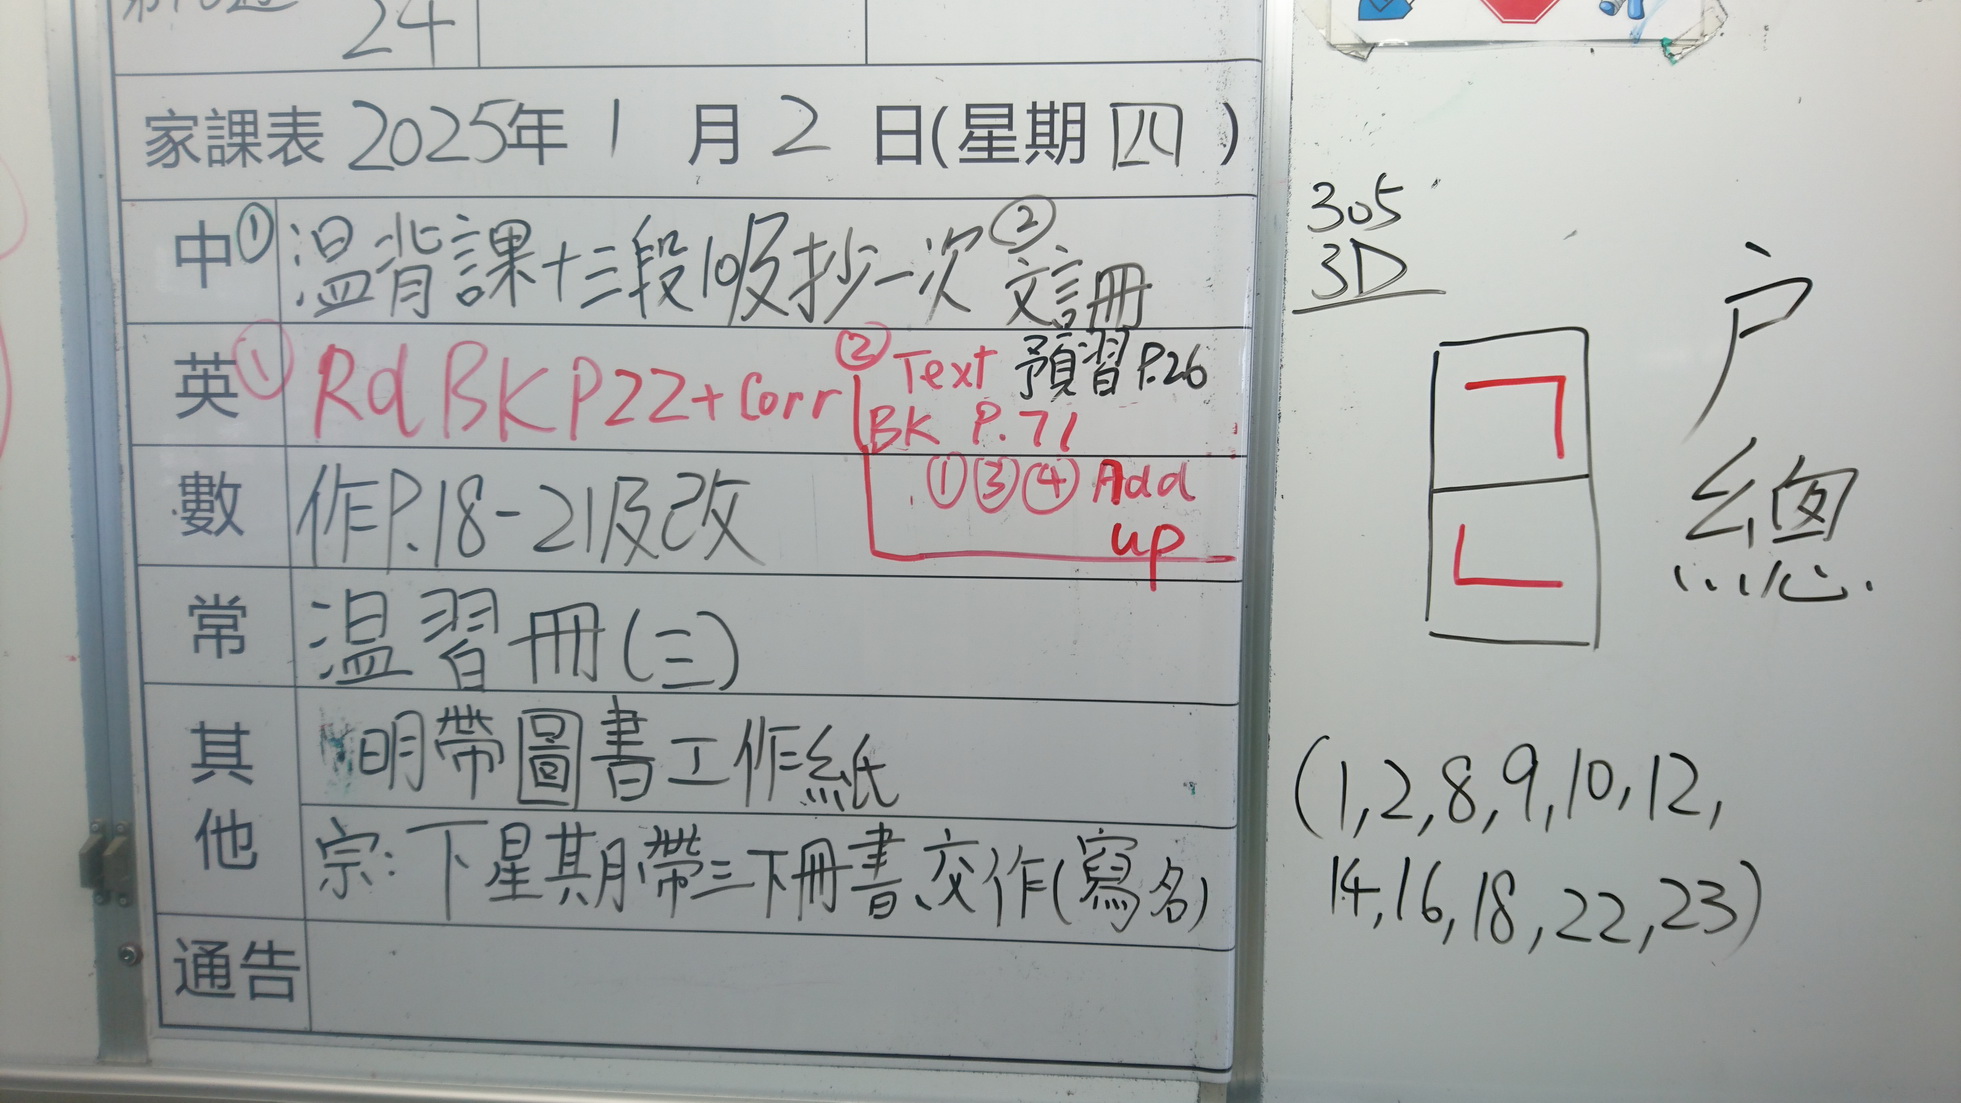 24
家課表 2025年 1 月 2 日(星期 四 )
中 ① 溫背課十三段10及抄一次 ② 文言冊
英 ① Rd BK P22 + Corr ② Text BK P.71
預習 P.26
①③④ Add up
數 作P.18-21及改
常 溫習冊(三)
其他 明帶圖書工作紙
宗: 下星期帶三下冊書、交作(寫名)
通告
305
3D
户
總
(1,2,8,9,10,12,
14,16,18,22,23)